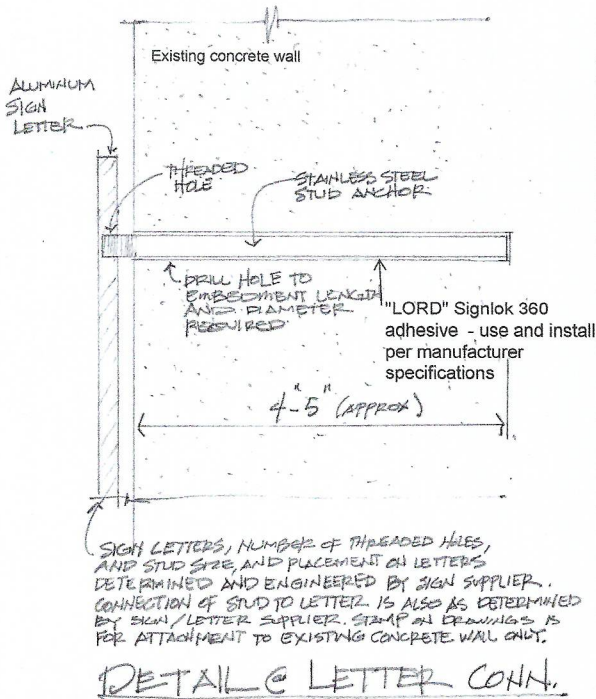 Existing concrete wall
ALUMINUM
SIGN
LETTER
THREADED
HOLE
STAINLESS STEEL
STUD ANCHOR
DRILL HOLE TO
EMBEDMENT LENGTH
AND DIAMETER
REQUIRED
"LORD" Signlok 360
adhesive - use and install
per manufacturer
specifications
4"-5" (APPROX)
SIGN LETTERS, NUMBER OF THREADED HOLES,
AND STUD SIZE, AND PLACEMENT ON LETTERS
DETERMINED AND ENGINEERED BY SIGN SUPPLIER.
CONNECTION OF STUD TO LETTER IS ALSO AS DETERMINED
BY SIGN/LETTER SUPPLIER. STAMP ON DRAWINGS IS
FOR ATTACHMENT TO EXISTING CONCRETE WALL ONLY.
DETAIL @ LETTER CONN.